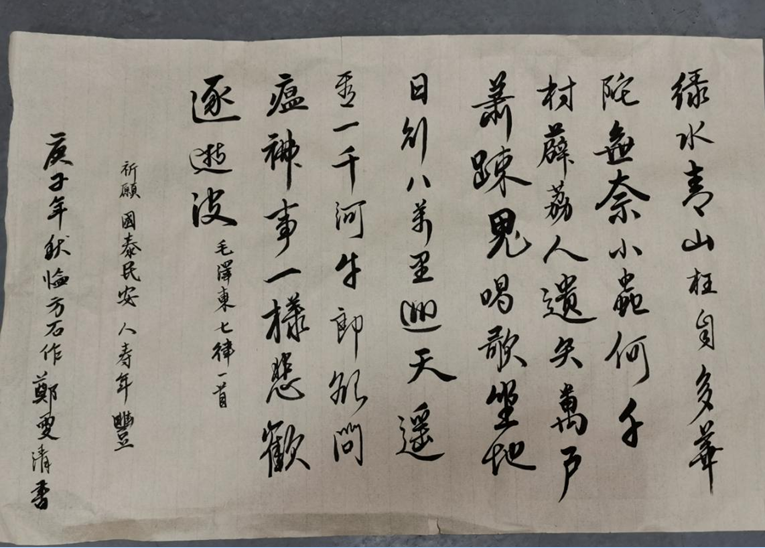 緑水青山枉自多華
陀無奈小蟲何千
村薜荔人遺矢萬户
蕭踈鬼唱歌坐地
日行八萬里廵天遥
看一千河牛郎欲問
瘟神事一樣悲歡
逐逝波
毛澤東七律一首
祈願國泰民安 人壽年豐
庚子年秋臨方石作 鄭清書